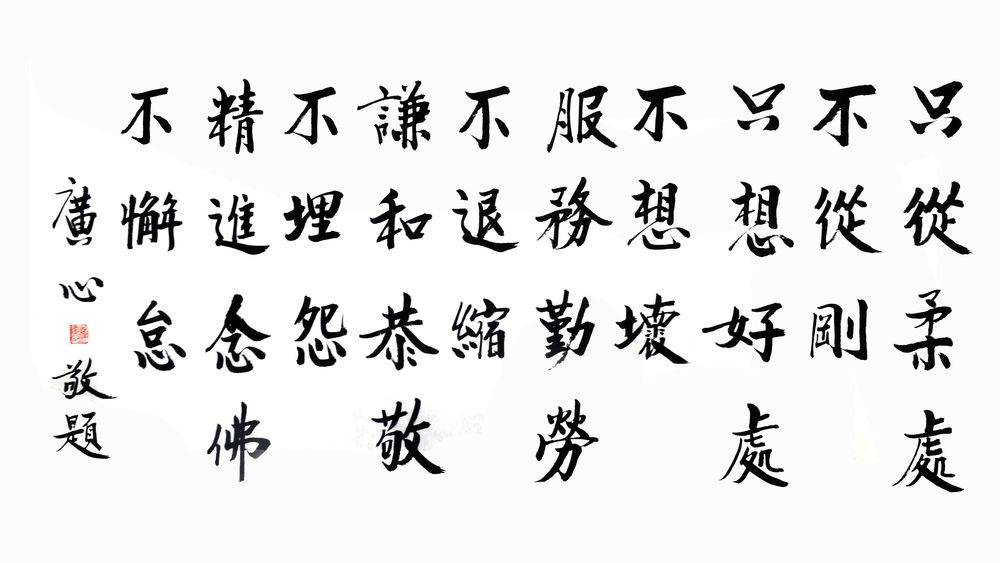 只從柔處
不從剛
只想好處
不想壞
服務勤勞
不退縮
謙和恭敬
不埋怨
精進念佛
不懈怠
廣心敬題